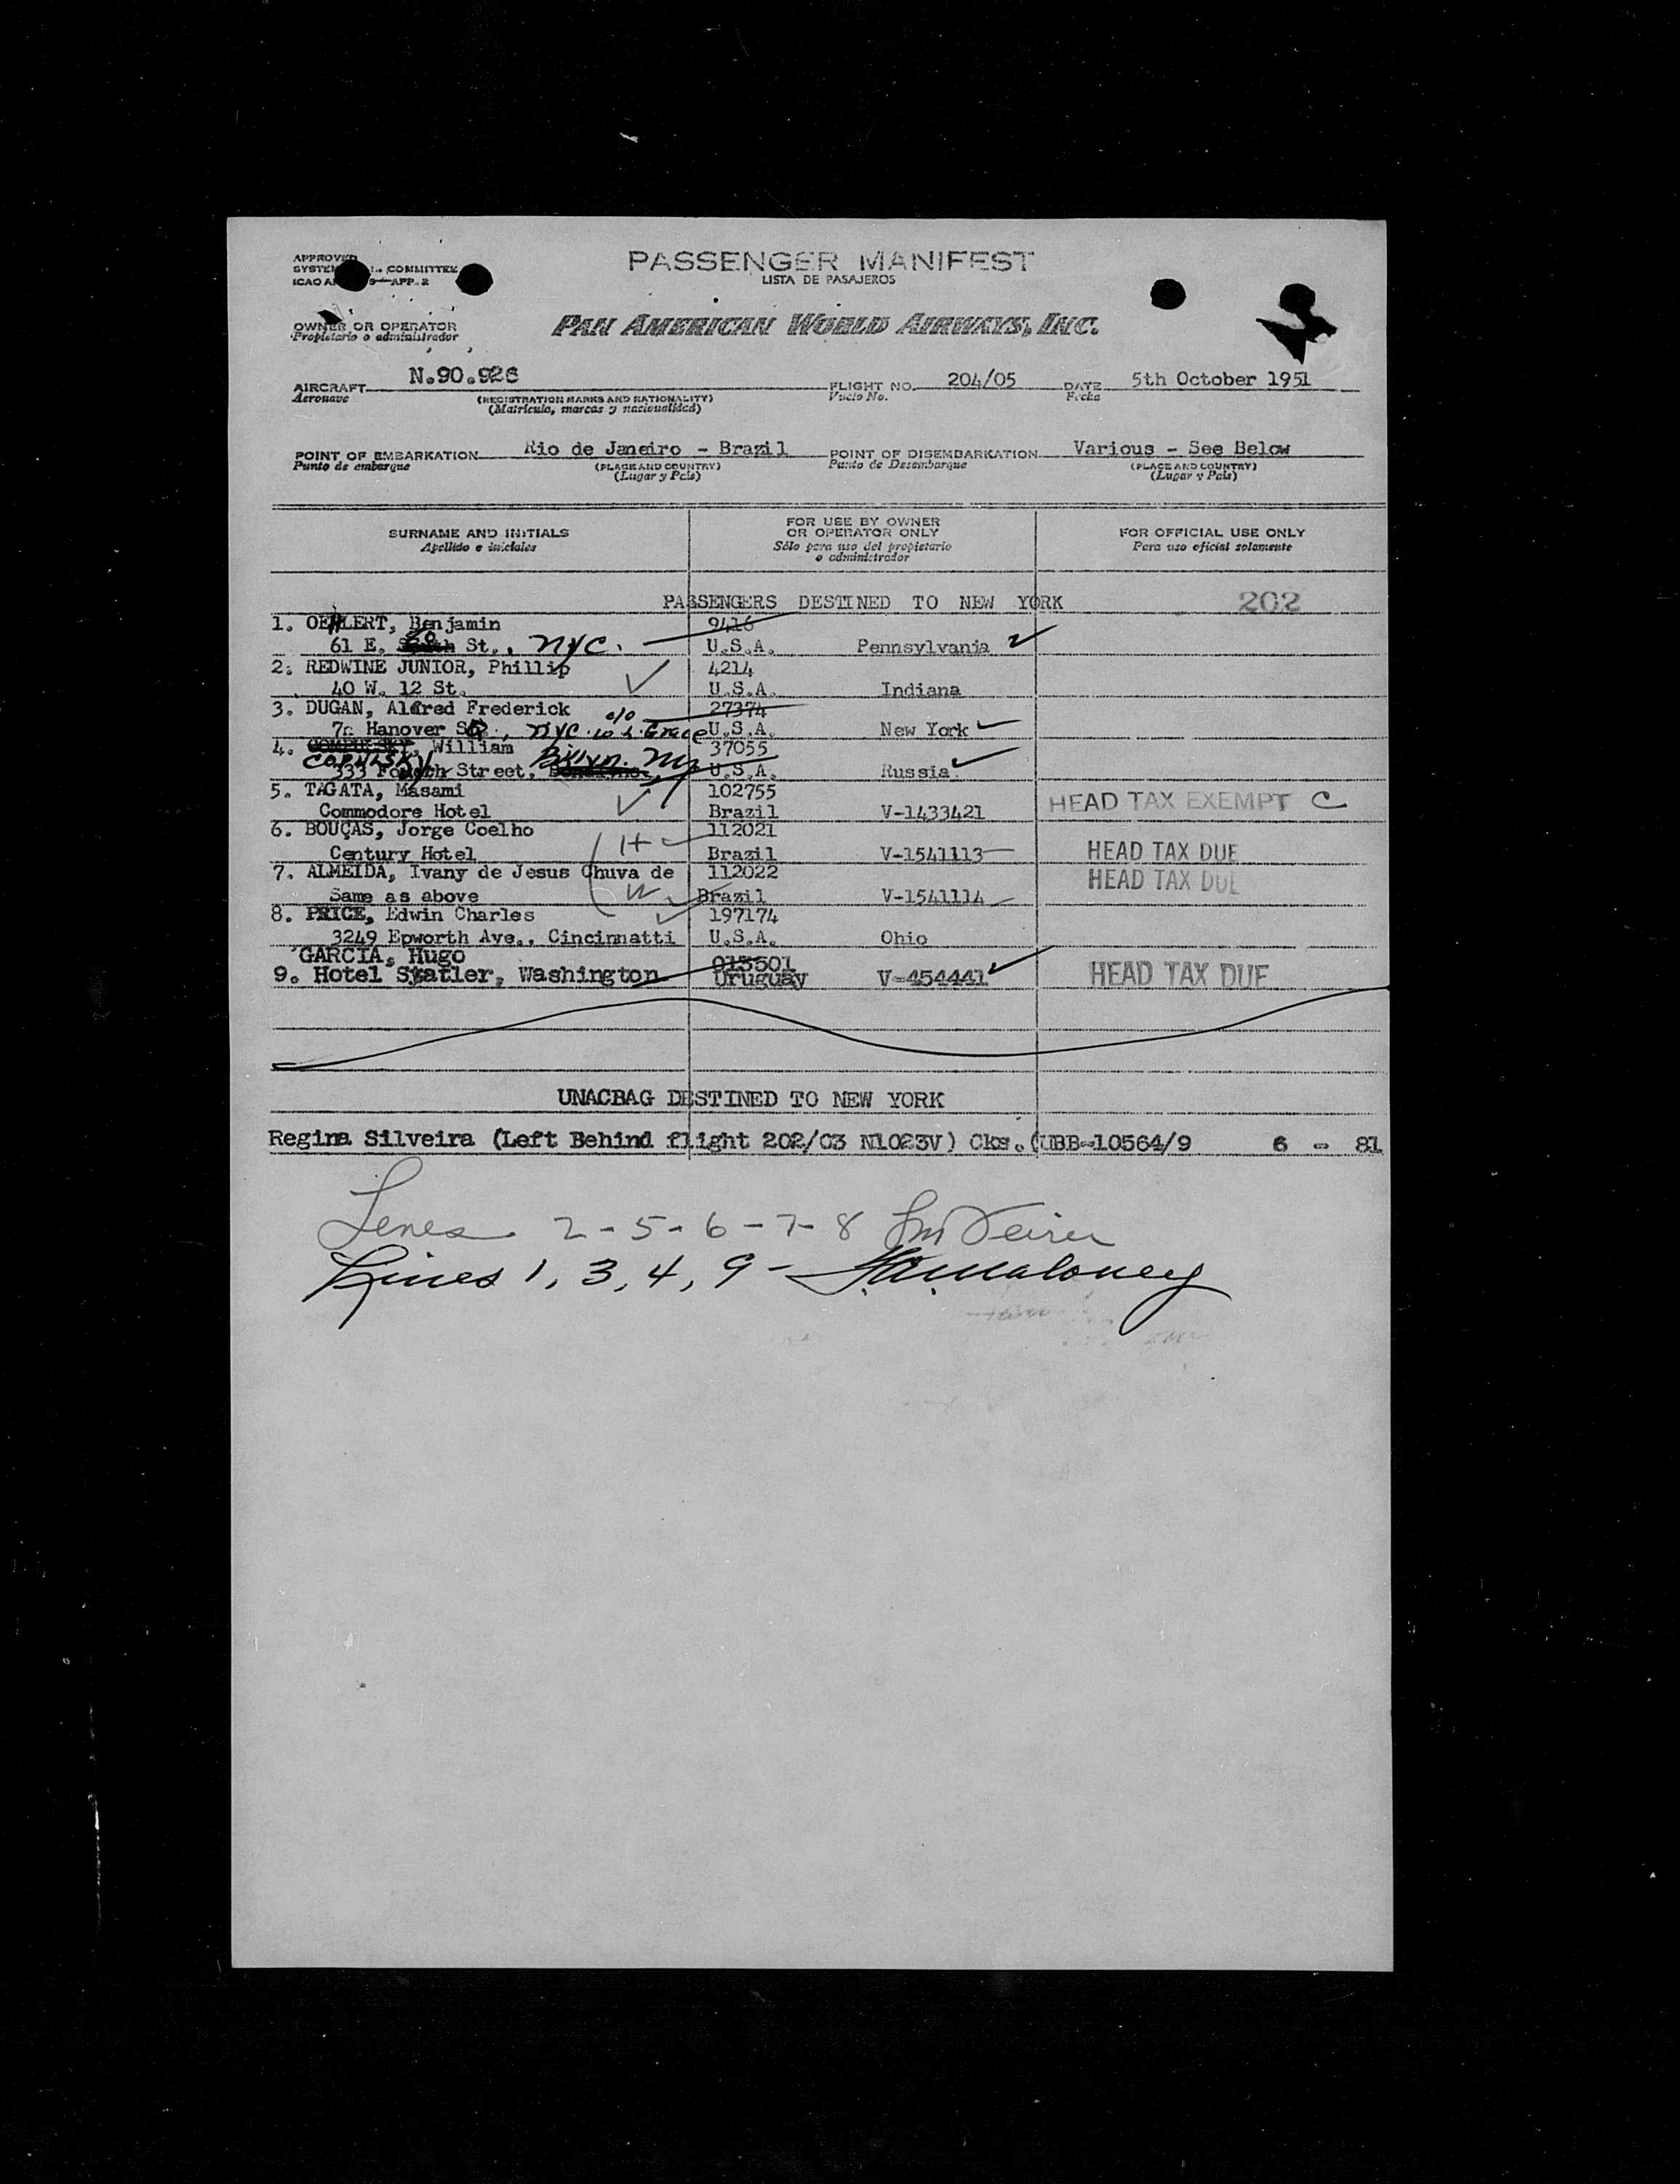 APPROVED
SYSTEM COMMITTEE
ICAO 9 APP. 2
PASSENGER MANIFEST
LISTA DE PASAJEROS
OWNER OR OPERATOR
Propietario o administrador
PAN AMERICAN WORLD AIRWAYS, INC.
AIRCRAFT N.90.926 FLIGHT NO. 204/05 DATE 5th October 1951
Aeronave (REGISTRATION MARKS AND NATIONALITY) Vuelo No. Fecha
(Matricula, marcas y nacionalidad)
POINT OF EMBARKATION Rio de Janeiro - Brazil POINT OF DISEMBARKATION Various - See Below
Punto de embarque (PLACE AND COUNTRY) Punto de Desembarque (PLACE AND COUNTRY)
(Lugar y País) (Lugar y País)
SURNAME AND INITIALS FOR USE BY OWNER OR OPERATOR ONLY FOR OFFICIAL USE ONLY
Apellido e iniciales Sólo para uso del propietario o administrador Para uso oficial solamente
PASSENGERS DESTINED TO NEW YORK 202
1. OEHLERT, Benjamin 9416
61 E. 60 St., NYC. U.S.A. Pennsylvania
2. REDWINE JUNIOR, Phillip 4214
40 W. 12 St. U.S.A. Indiana
3. DUGAN, Alfred Frederick 27374
7n Hanover SQ., NYC. c/o W.R. Grace U.S.A. New York
4. COPULSKY, William 37055
333 Street, Bklyn. NY U.S.A. Russia
5. TAGATA, Masami 102755
Commodore Hotel Brazil V-1433421 HEAD TAX EXEMPT C
6. BOUÇAS, Jorge Coelho H 112021
Century Hotel Brazil V-1541113 HEAD TAX DUE
7. ALMEIDA, Ivany de Jesus Chuva de 112022 HEAD TAX DUE
Same as above W Brazil V-1541114
8. PRICE, Edwin Charles 197174
3249 Epworth Ave., Cincinnatti U.S.A. Ohio
GARCIA, Hugo 013501
9. Hotel Statler, Washington Uruguay V-454441 HEAD TAX DUE
UNACBAG DESTINED TO NEW YORK
Regina Silveira (Left Behind flight 202/03 N1023V) Cks. (UBB-10564/9 6 - 81
Lines 2-5-6-7-8
Lines 1, 3, 4, 9 - Maloney